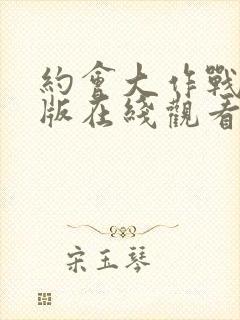 約會大作戰
版在綫觀看
宋玉琴